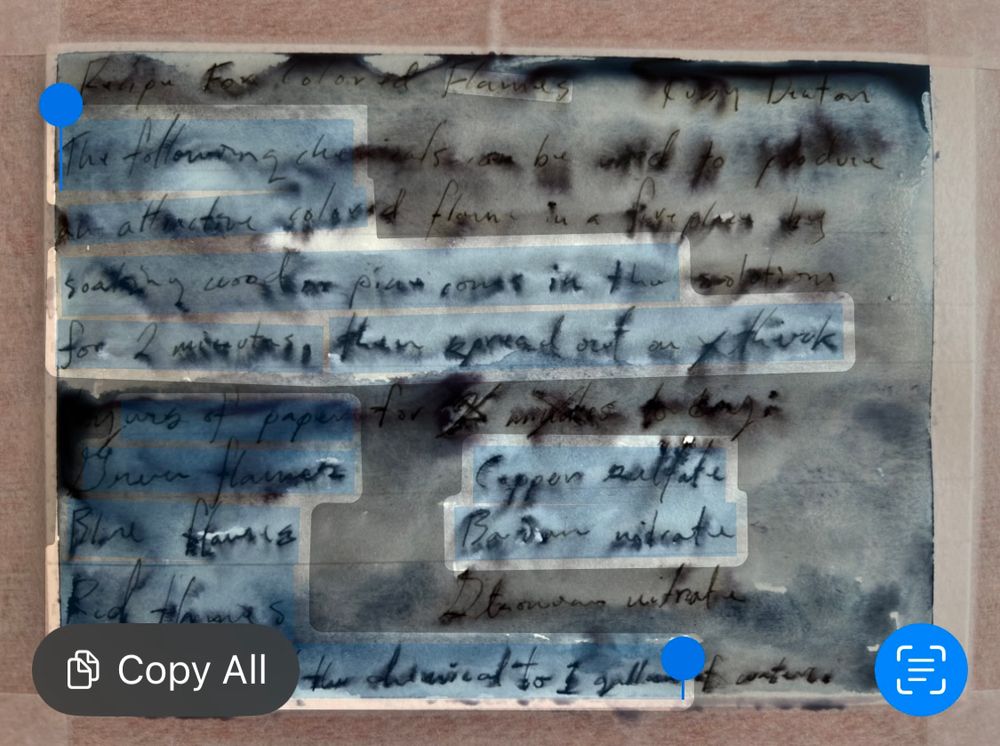 Recipe For Colored Flames
The following chemicals can be used to produce
an attractive colored flame in a fireplace by
soaking wood or pine cones in the solution
for 2 minutes, then spread out on thick
layers of paper for minutes to dry:
Green flames Copper sulfate
Blue flames Barium nitrate
Red flames nitrate
the chemical to 1 gallon of water.
Copy All